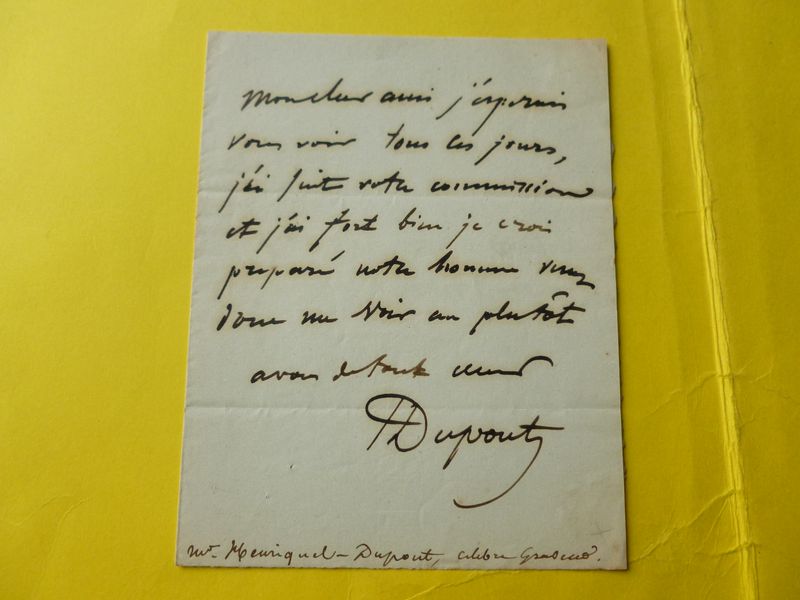 Mon cher ami j'espérais
vous voir tous ces jours,
j'ai fait votre commission
et j'ai fort bien je crois
preparé notre homme venez
donc me voir au plutôt
a vous de tout cœur
HDupont
mr. Henriquel-Dupont, célèbre Graveur.